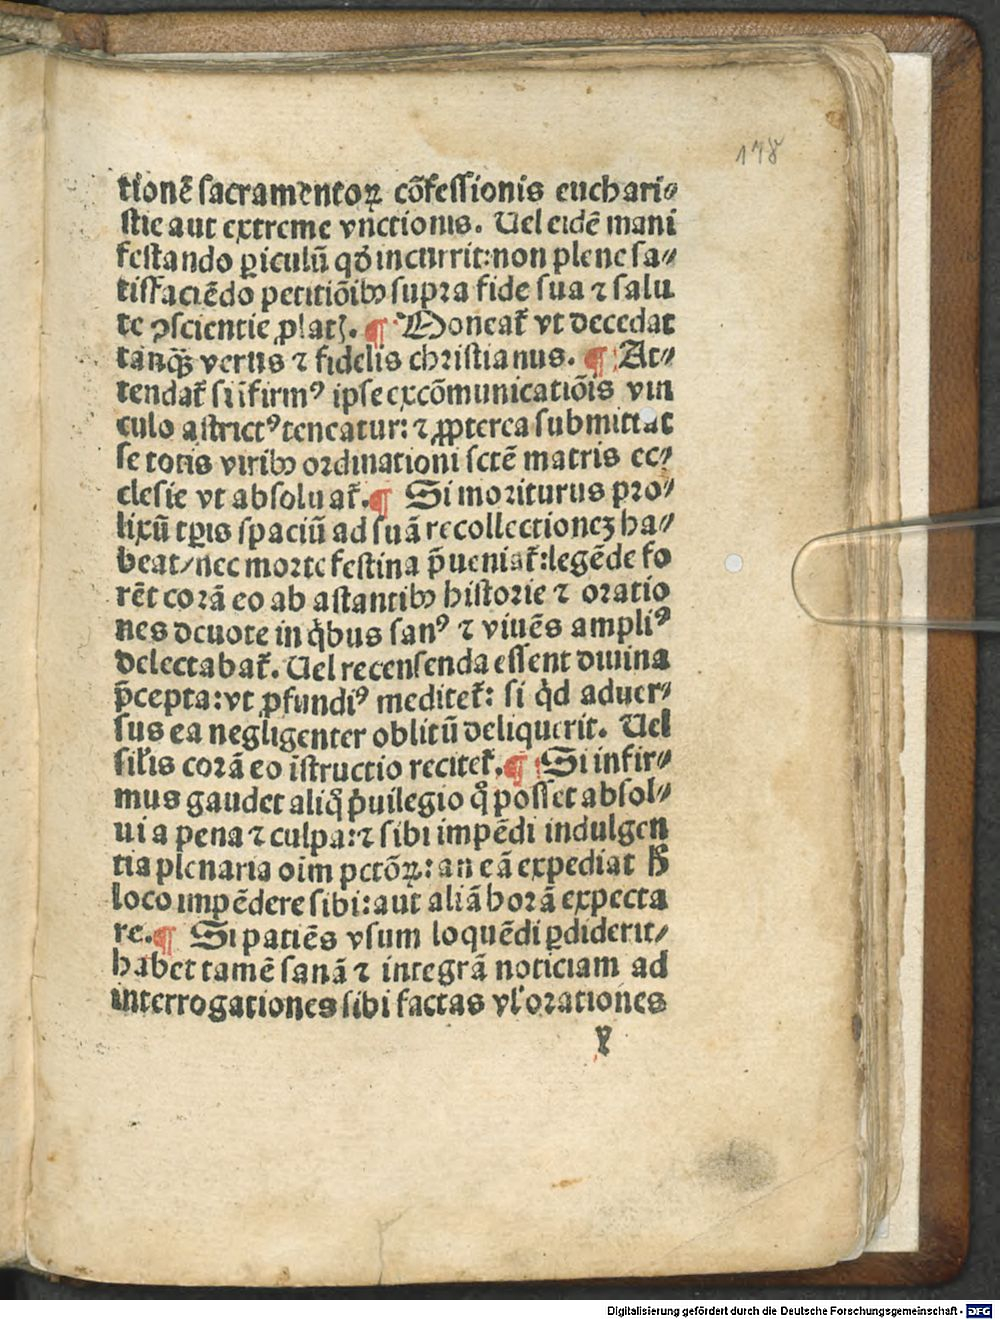 178
tionē sacramentoꝝ cōfessionis euchari⸗
stie aut extreme vnctionis. Uel eidē mani
festando ꝑiculū qđ incurrit:non plene sa⸗
tisfaciēdo petitiōibꝰ supra fide sua ⁊ salu
te ꝯscientie ꝓlatꝭ. ¶ Moneat̃ vt decedat
tanqꝫ verus ⁊ fidelis christianus. ¶ At⸗
tendat̃ si īfirmꝰ ipse excōmunicatiōis vin
culo astrictꝰ teneatur: ⁊ ꝓpterea submittat
se totis viribꝰ ordinationi sctē matris ec⸗
clesie vt absoluat̃. ¶ Si moriturus pro⸗
lixū tꝑis spaciū ad suā recollectionēꝫ ha⸗
beat/nec morte festina p̄ueniat̃:legēde fo
rēt corā eo ab astantibꝰ historie ⁊ oratio
nes deuote in q̇bus sanꝰ ⁊ viuēs ampliꝰ
delectabat̃. Uel recensenda essent diuina
p̄cepta:vt ꝓfundiꝰ meditet̃: si q̇d aduer⸗
sus ea negligenter oblitū deliquerit. Uel
sil̓is corā eo īstructio recitet̃. ¶ Si infir⸗
mus gaudet aliq̄ ṗuilegio q̊ posset absol⸗
ui a pena ⁊ culpa:⁊ sibi impēdi indulgen
tia plenaria oīm pctōꝝ: an eā expediat h̄
loco impēdere sibi:aut aliā horā expecta
re. ¶ Si patiēs vsum loquēdi ꝑdiderit/
habet tamē sanā ⁊ integrā noticiam ad
interrogationes sibi factas vl̓ orationes
y
Digitalisierung gefördert durch die Deutsche Forschungsgemeinschaft - DFG